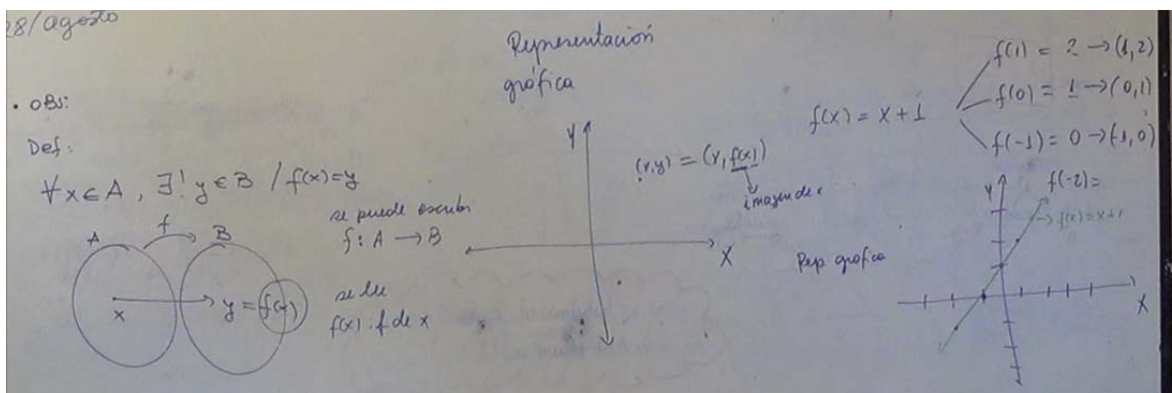 28/agosto
• OBS:
Def:
∀x∈A, ∃! y∈B / f(x)=y
A f B
x y = f(x)
se puede escribir
f: A → B
se lee
f(x): f de x
Representación
gráfica
Y
(x,y) = (x, f(x))
imagen de x
X
f(x) = x + 1
f(1) = 2 → (1,2)
f(0) = 1 → (0,1)
f(-1) = 0 → (-1,0)
f(-2) =
Rep gráfica
Y
→ f(x)=x+1
X